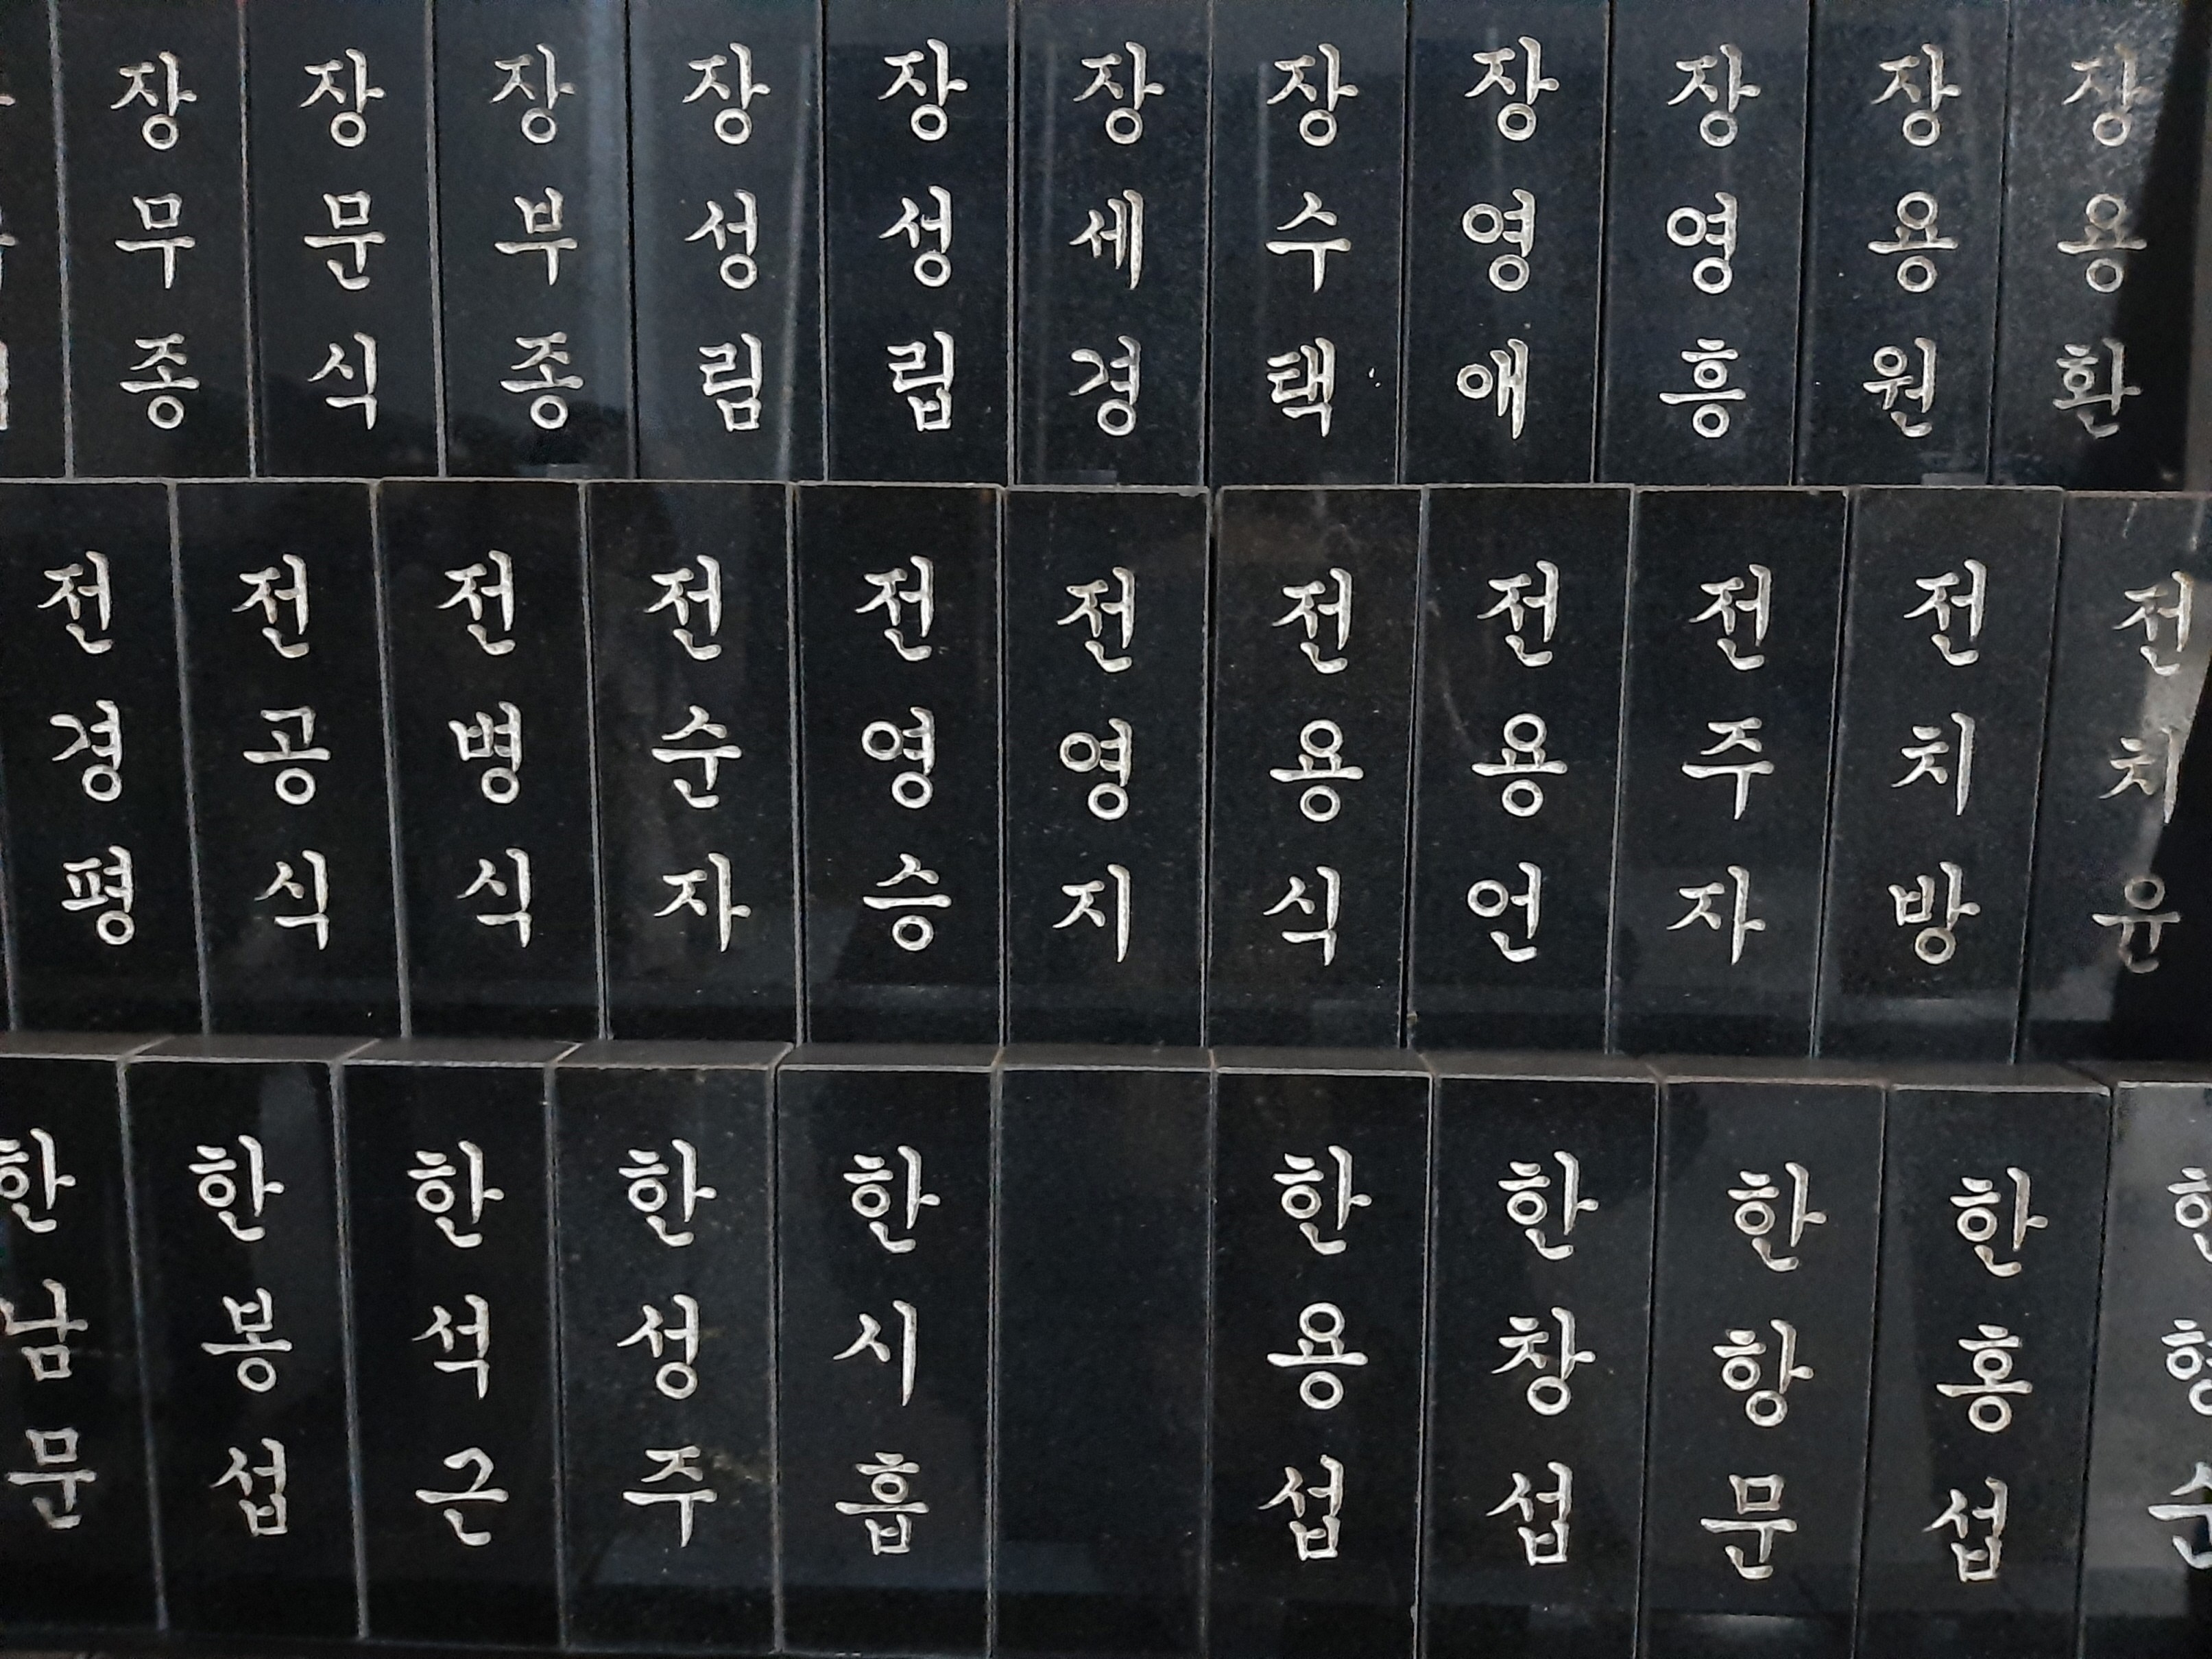 장무종
장문식
장부종
장성림
장성립
장세경
장수택
장영애
장영흥
장용원
장용환
전경평
전공식
전병식
전순자
전영승
전영지
전용식
전용언
전주자
전치방
전치윤
한남문
한봉섭
한석근
한성주
한시흡
한용섭
한창섭
한항문
한홍섭